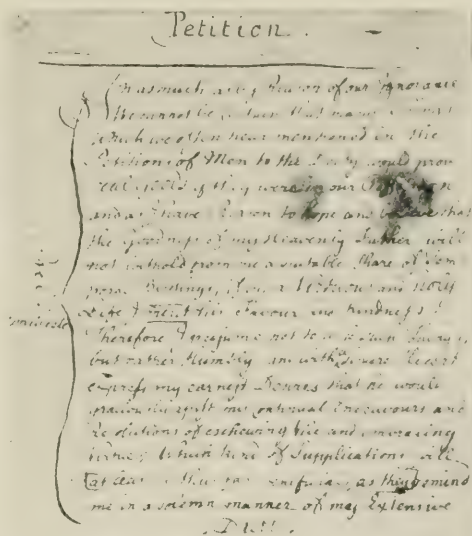 Petition.
In as much as by Reason of our Ignorance
We cannot be certain that many Things
which we often hear mentioned in the
Petitions of Men to the Deity would prove
real Goods if they were in our Possession
and as I have Reason to hope and believe that
the Goodness of my Heavenly Father will
not withold from me a suitable Share of Tem
poral Blessings, if by a Virtuous and Holy
Life I merit his Favour and Kindness,
Therefore I presume not to ask such Things
but rather Humbly, and with a sincere Heart
express my earnest Desires that he would
graciously assist my Continual Endeavours and
Resolutions of eschewing Vice and embracing
Virtue; Which kind of Supplications will
at least be thus far beneficial, as they remind
me in a solemn manner of my Extensive
Duty.